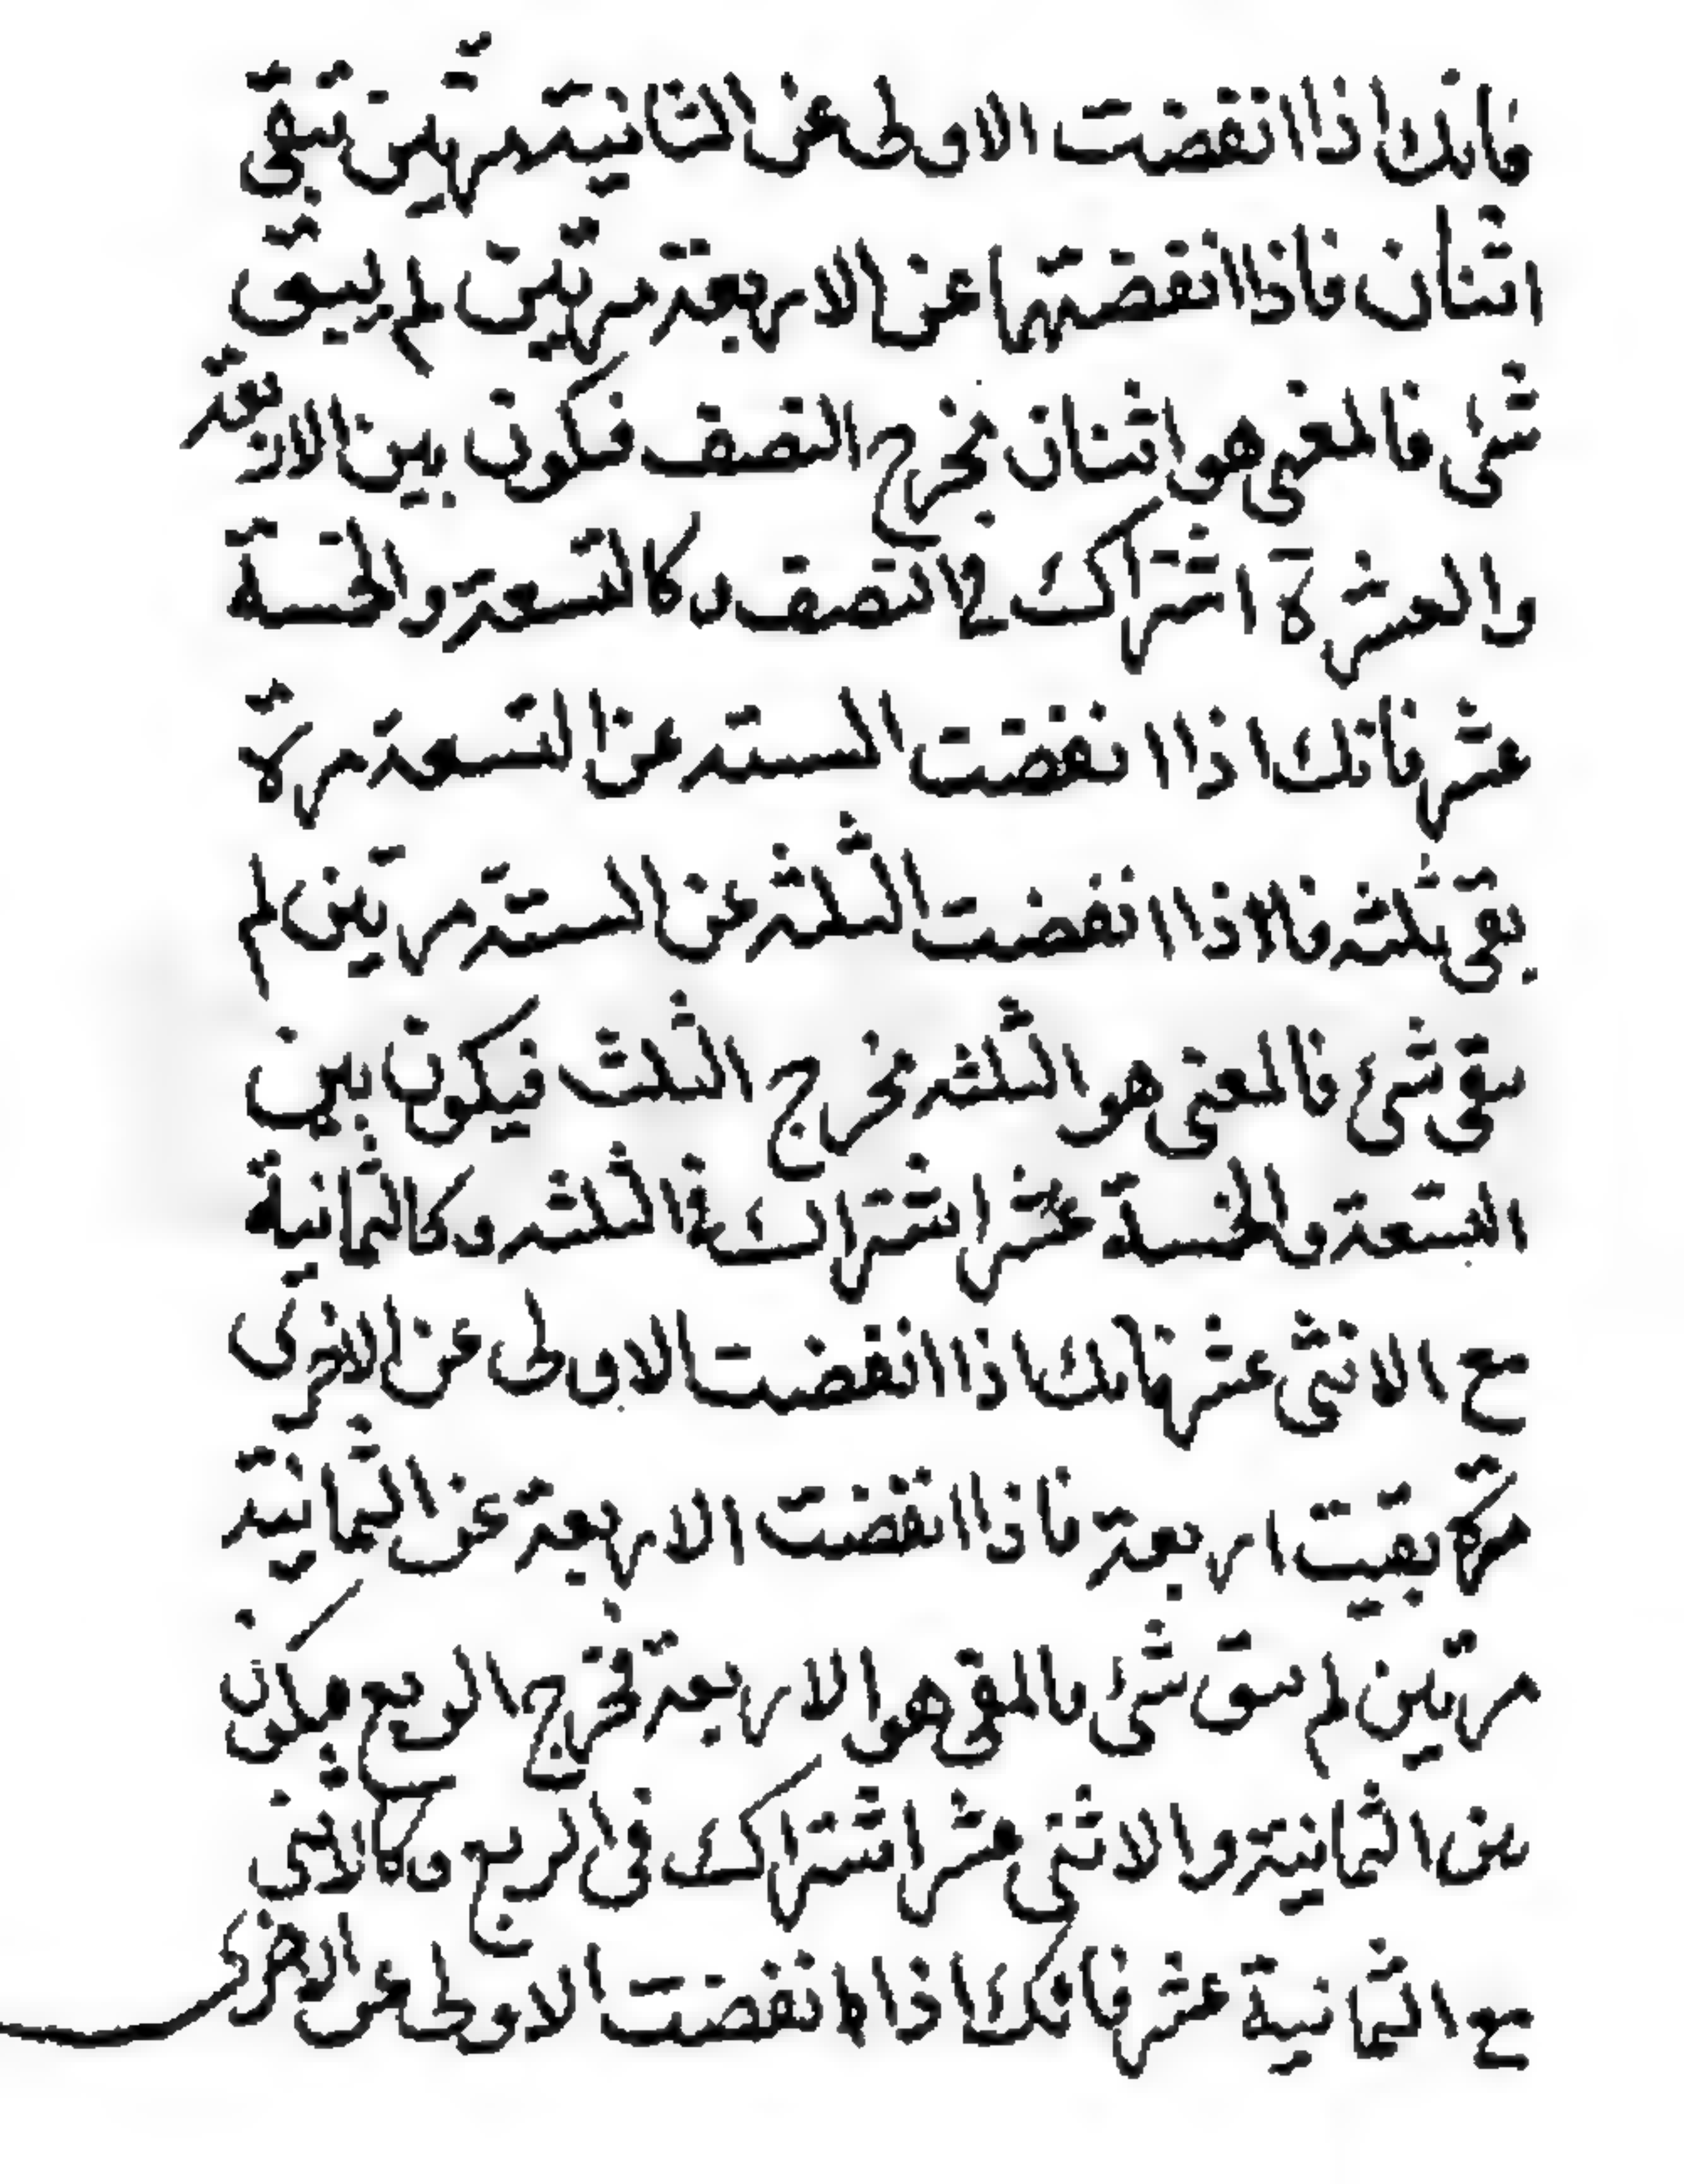 فانك اذا انقضت الاولى عن الثانية مرتين تبقى
اثنان فاذا انقضتها عن الاربعة مرتين لم يبق
شئ فالمغنى هو اثنان مخرج النصف فكون بين الاربعة
والعشرة اشتراك في النصف وكالتسعة والخمسة
عشر فانك اذا انقضت الستة عن التسعة مرة
بقى ثلثه فاذا انقضت الثلثة عن الستة مرتين لم
يبقى شئ فالمعنى هو الثلثه مخرج الثلث فيكون بين
التسعة والخمسة عشر اشتراك في الثلث وكالثمانية
مع الاثنى عشر فانك اذا انقضت الاولى عن الاخرى
مرة بقيت اربعة فاذا انقضت الاربعة عن الثمانية
مرتين لم يبق شئ فالمفنى هو الاربعة فخرج الربع فيكون
بين الثمانية والاثنى عشر اشتراك في الربع وكالاثنى
مع الثمانية عشر فانك اذا انقضت الاولى عن الاخرى